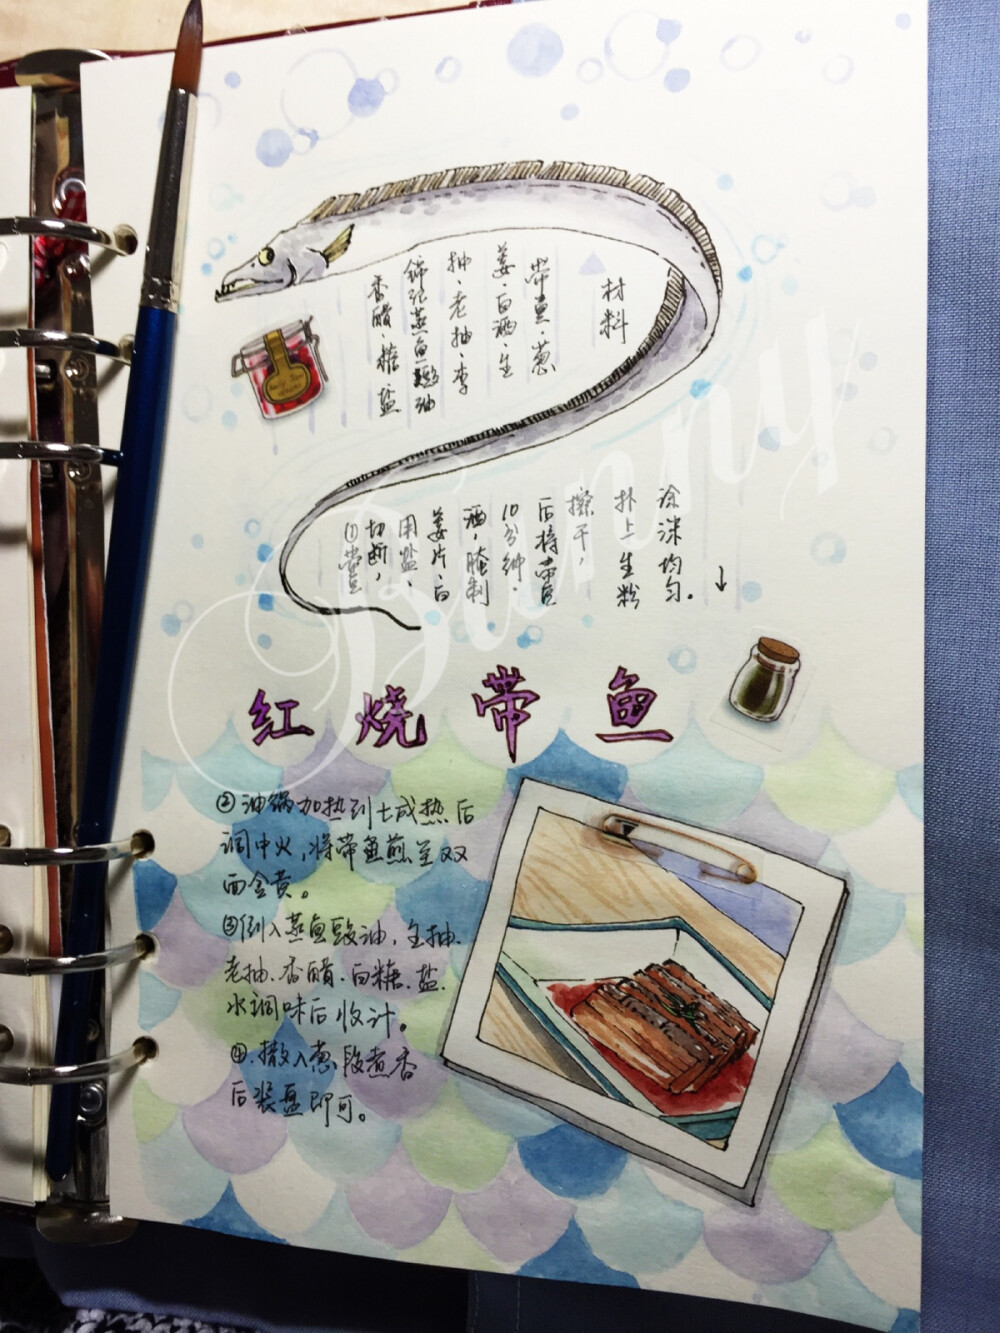 材料
带鱼、葱
姜、白酒、生
抽、老抽、李
锦记蒸鱼豉油
香醋、糖、盐
①带鱼
切断，
用盐、
姜片、白
酒，腌制
10分钟.
后将带鱼
擦干，
扑上生粉
涂沫均匀。
↓
红烧带鱼
②油锅加热到七成热后
调中火，将带鱼煎至双
面金黄。
③倒入蒸鱼豉油，生抽、
老抽、香醋、白糖、盐、
水调味后收汁。
④.撒入葱段煮香
后装盘即可。
Bunny